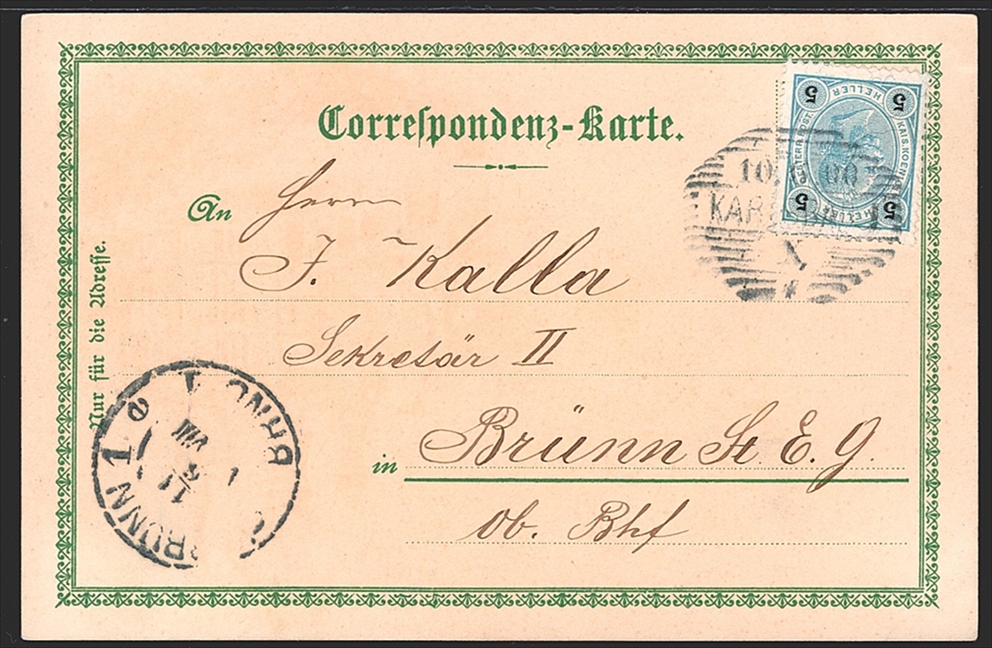 Correspondenz-Karte.
An Herrn
J. Kalla
Sekretär II
in Brünn St. E. G.
Ob. Bhf
Nur für die Adresse.
5 HELLER 5
KAIS. KOENIGL.
OESTERR. POST.
5 HELLER 5
10. 00
KAR
BRÜNN 1
BRNO